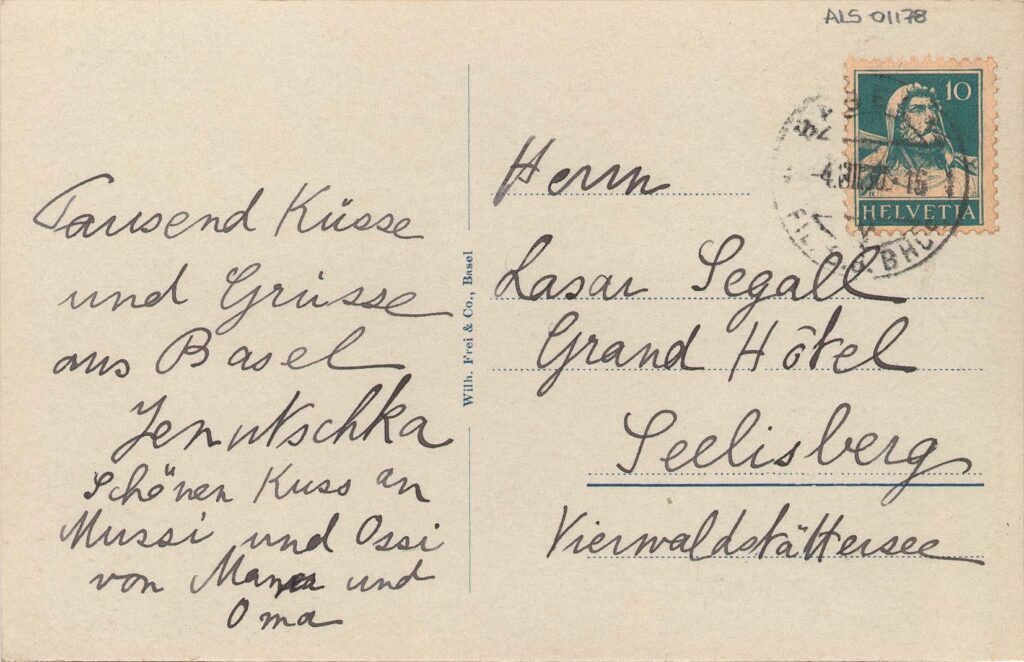 ALS 01178
10
HELVETIA
Tausend Küsse
und Grüsse
aus Basel
Jenutschka
Schönen Kuss an
Mussi und Ossi
von Mama und
Oma
Wilh. Frei & Co., Basel
Herrn
Lasar Segall
Grand Hôtel
Seelisberg
Vierwaldstättersee